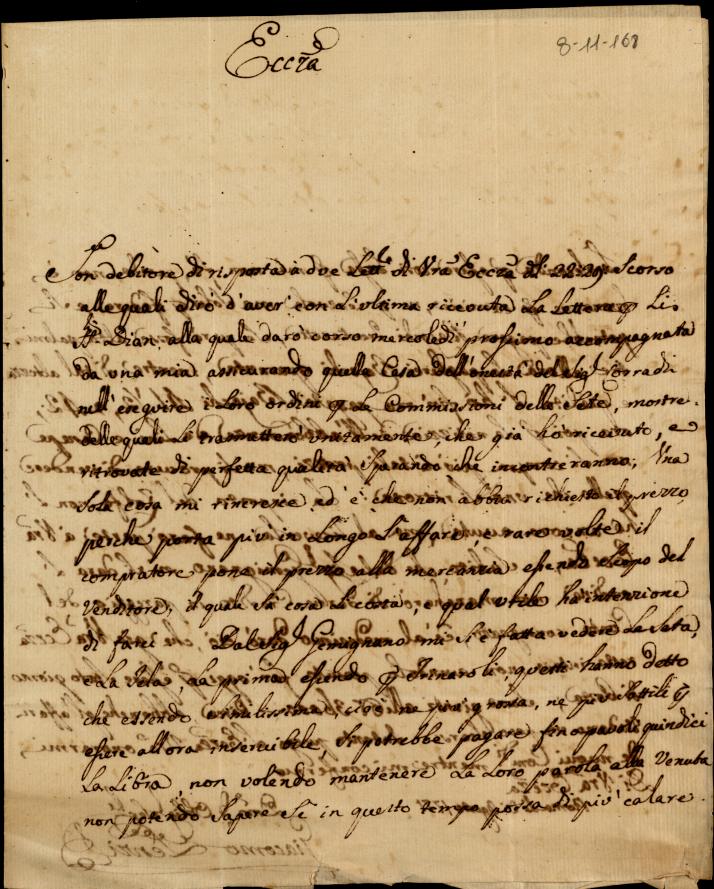 Eccza
8-11-168
Son debitore di risposta à due Lett.e di Vra Eccza del 22: 29 Scorso
alle quali dirò d'aver' con l'ultima riceouta La Lettera p Li
Dian, alla quale darò corso mercoledi prossimo accompagnata
da una mia assicurando quella Casa dell'onestà del Sig.r Corradi
nell'eseguire i Loro ordini p Le Commissioni delle Sete, mostre
delle quali Li trametterò unitamente, che già hò riceuuto, e
ritrovate di perfetta qualità Sperando che incontreranno; Una
Sola cosa mi rincresce, ed è che non abbia richiesto il prezzo,
perche porta più in Longo L'affare e rare volte il
compratore pone il prezzo alla mercanzia essendo Scopo del
Venditore, il quale Sà cosa Li costa, e qual utile ha intenzione
di farci. Dal Sig.r Gimignano mi Si è fatta vedere La Seta,
e La Vela, La prima essendo p Trinaroli, questi hanno detto
che essendo usualissima, cioè ne più grossa, ne più Sottile p
essere allora inservibile, Si potrebbe pagare fino a pavoli quindici
La Libra, non volendo mantenere La Loro parola alla Venuta
non potendo Sapere Se in questo tempo possa di più calare.
Giacomo